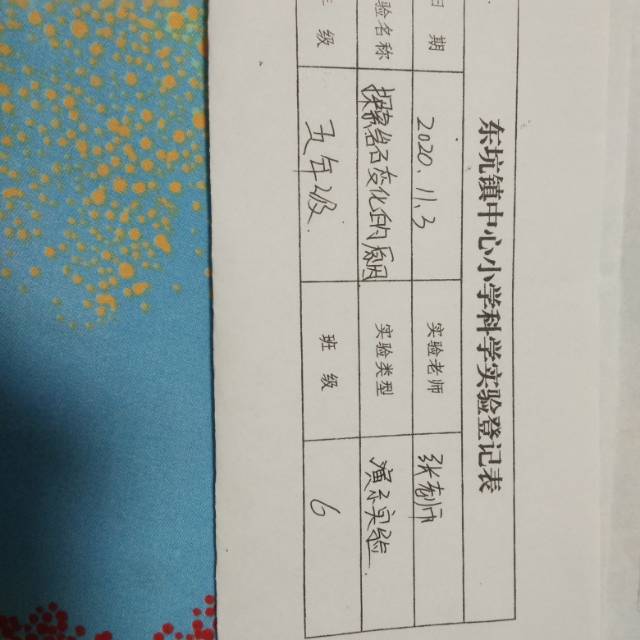 东坑镇中心小学科学实验登记表
日 期 2020.11.3 实验老师 张老师
验名称 探索岩石变化的原因 实验类型 演示实验
年 级 五年级 班 级 6